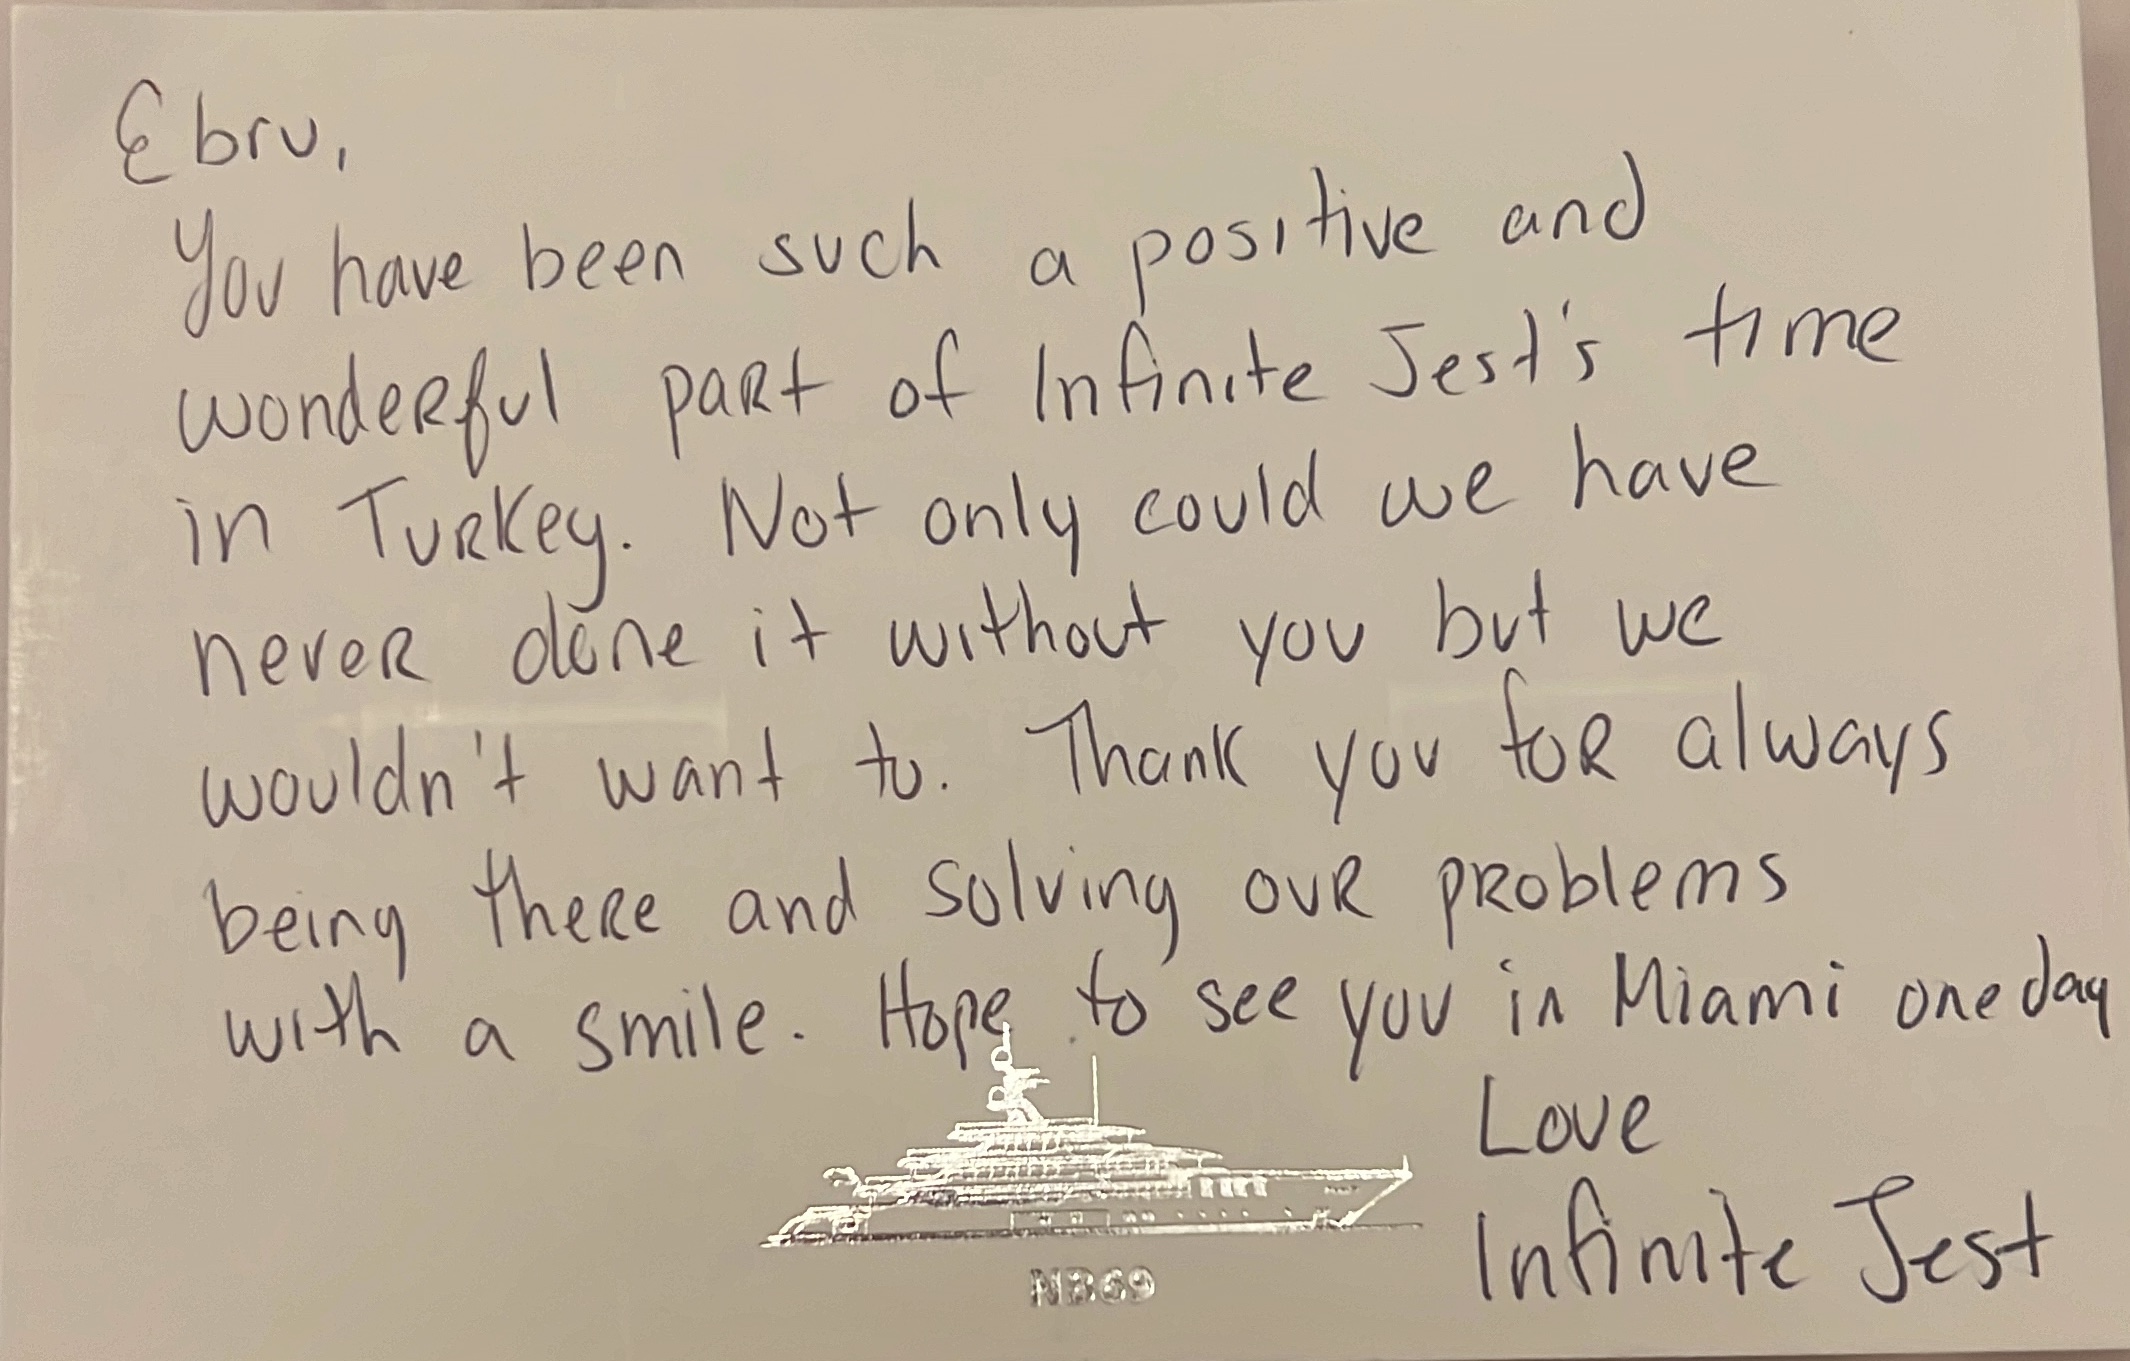 Ebru,
You have been such a positive and
wonderful part of Infinite Jest's time
in Turkey. Not only could we have
never done it without you but we
wouldn't want to. Thank you for always
being there and solving our problems
with a smile. Hope to see you in Miami one day
Love
Infinite Jest
NB69